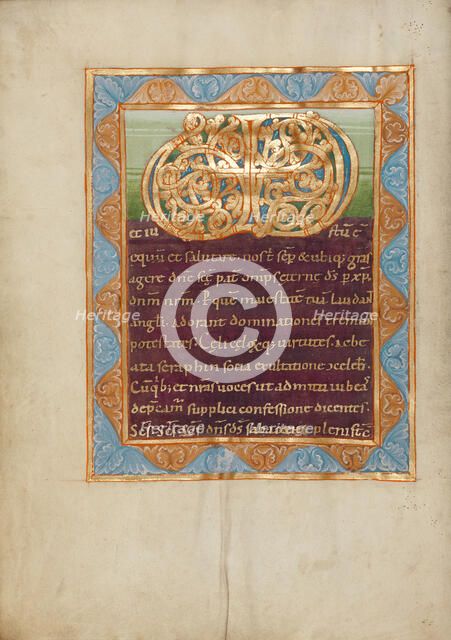 et iu stu e
equu et salutare. nos t sep & ubiq gras
agere dne sce pat omps eterne ds p xp
dnm nrm. P que maiestate tua Laudan
angli. Adorant dominationes tremun
potestates. Celi celoq virtutes ac be
ata seraphin socia exultatione celeb.
Cu qb et nras voces ut admitti iubeas
deprecam supplici confessione dicentes.
Scs Scs Scs dns ds sabaoth pleni st c
Heritage
Heritage
Heritage
Heritage
Heritage
Heritage